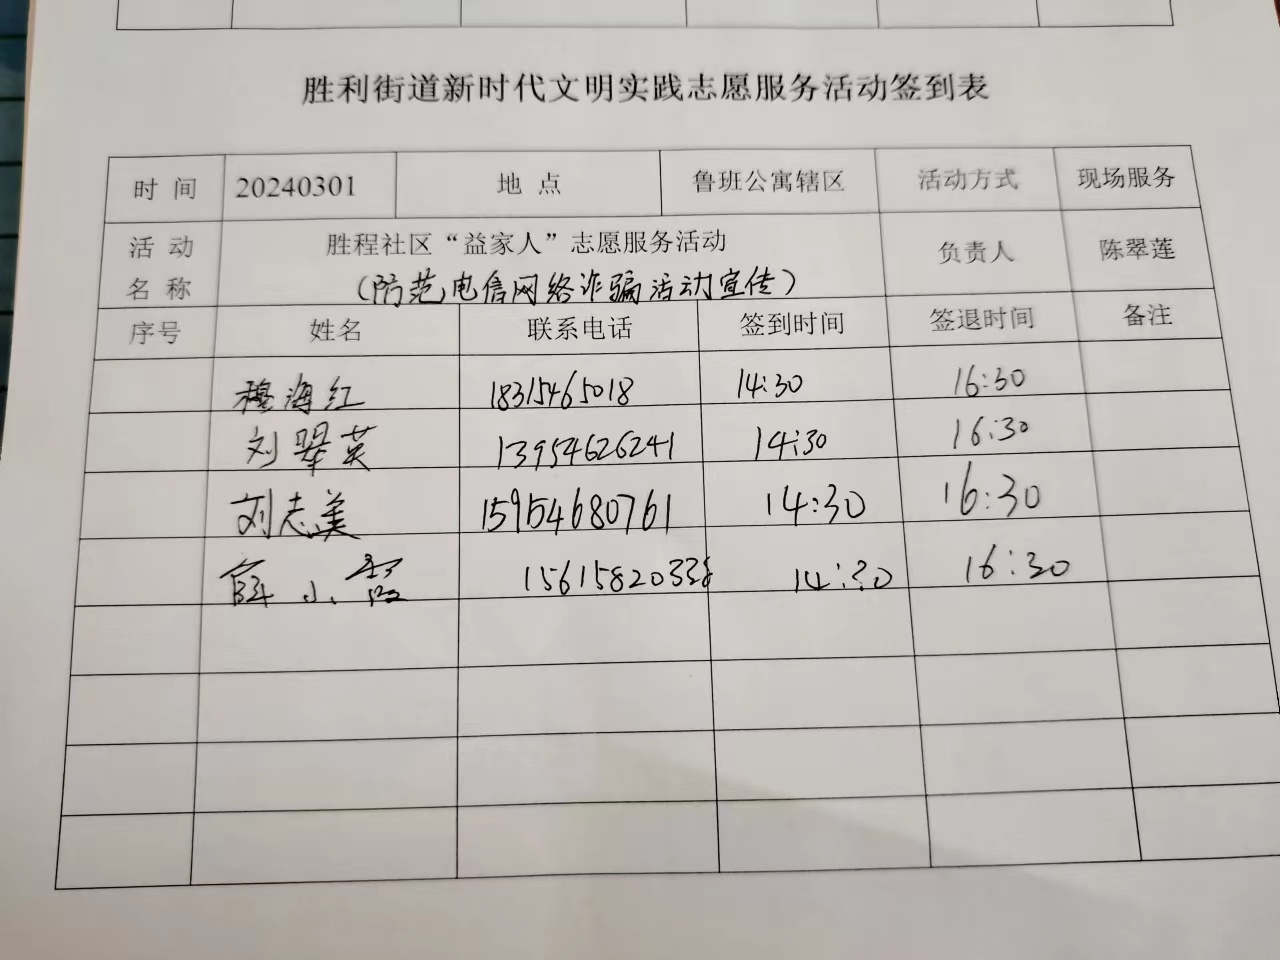 胜利街道新时代文明实践志愿服务活动签到表
时 间 20240301 地 点 鲁班公寓辖区 活动方式 现场服务
活 动 名 称 胜程社区“益家人”志愿服务活动 负责人 陈翠莲
（防范电信网络诈骗活动宣传）
序号 姓名 联系电话 签到时间 签退时间 备注
穆海红 18315465018 14:30 16:30
刘翠英 13954626241 14:30 16:30
刘志美 15954680761 14:30 16:30
薛小霞 15615820338 14:30 16:30